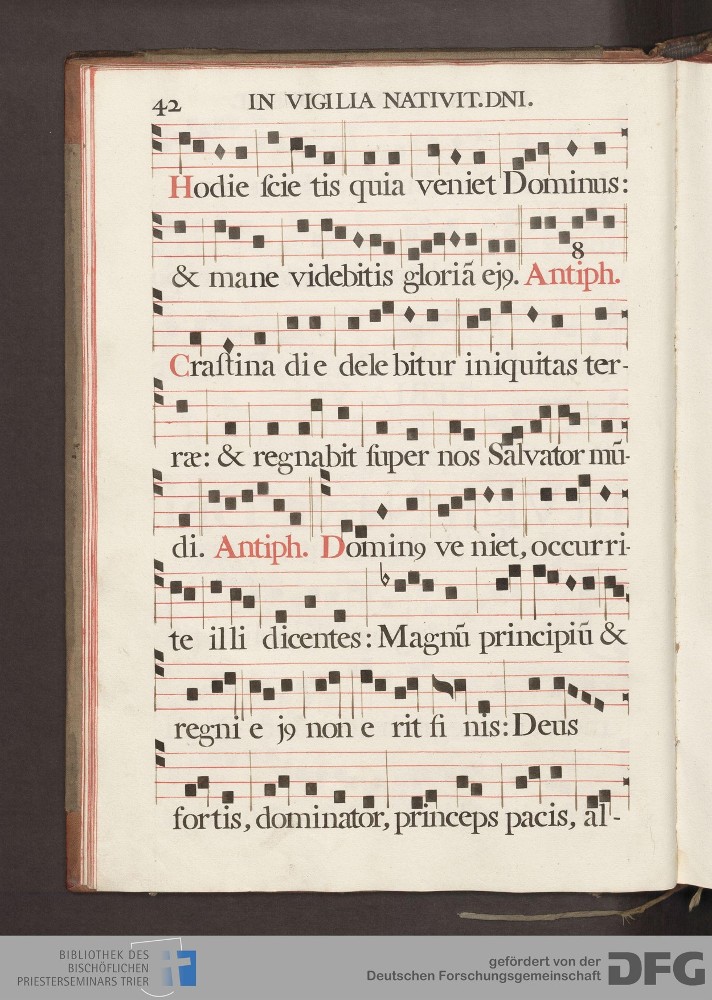 42 IN VIGILIA NATIVIT.DNI.
Hodie ſcie tis quia veniet Dominus:
8
& mane videbitis gloriã ejꝰ. Antiph.
Craſtina die dele bitur iniquitas ter-
ræ: & regnabit ſuper nos Salvator mũ-
di. Antiph. Dominꝰ ve niet, occurri-
te illi dicentes: Magnũ principiũ &
regni e jꝰ non e rit fi nis: Deus
fortis, dominator, princeps pacis, al-
BIBLIOTHEK DES
BISCHÖFLICHEN
PRIESTERSEMINARS TRIER
gefördert von der
Deutschen Forschungsgemeinschaft
DFG